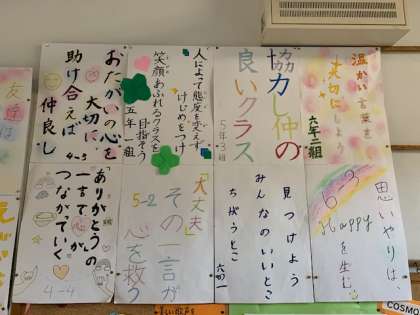 温かい言葉を
大切に
しよう
六年二組
協力し仲の
良いクラス
5年3組
人によって態度を変えず
けじめをつけ
笑顔あふれるクラスを
目指そう
五年一組
おたがいの心を
大切に、
助け合えば
仲良し
4-5
思いやりは、
Happyを生む
6-3
見つけよう
みんなのいいとこ
ちがうとこ
六の一
「大丈夫」
その一言が
心を救う
5-2
ありがとうの
一言で心が
つながっていく
4-4
友達は
COSMO